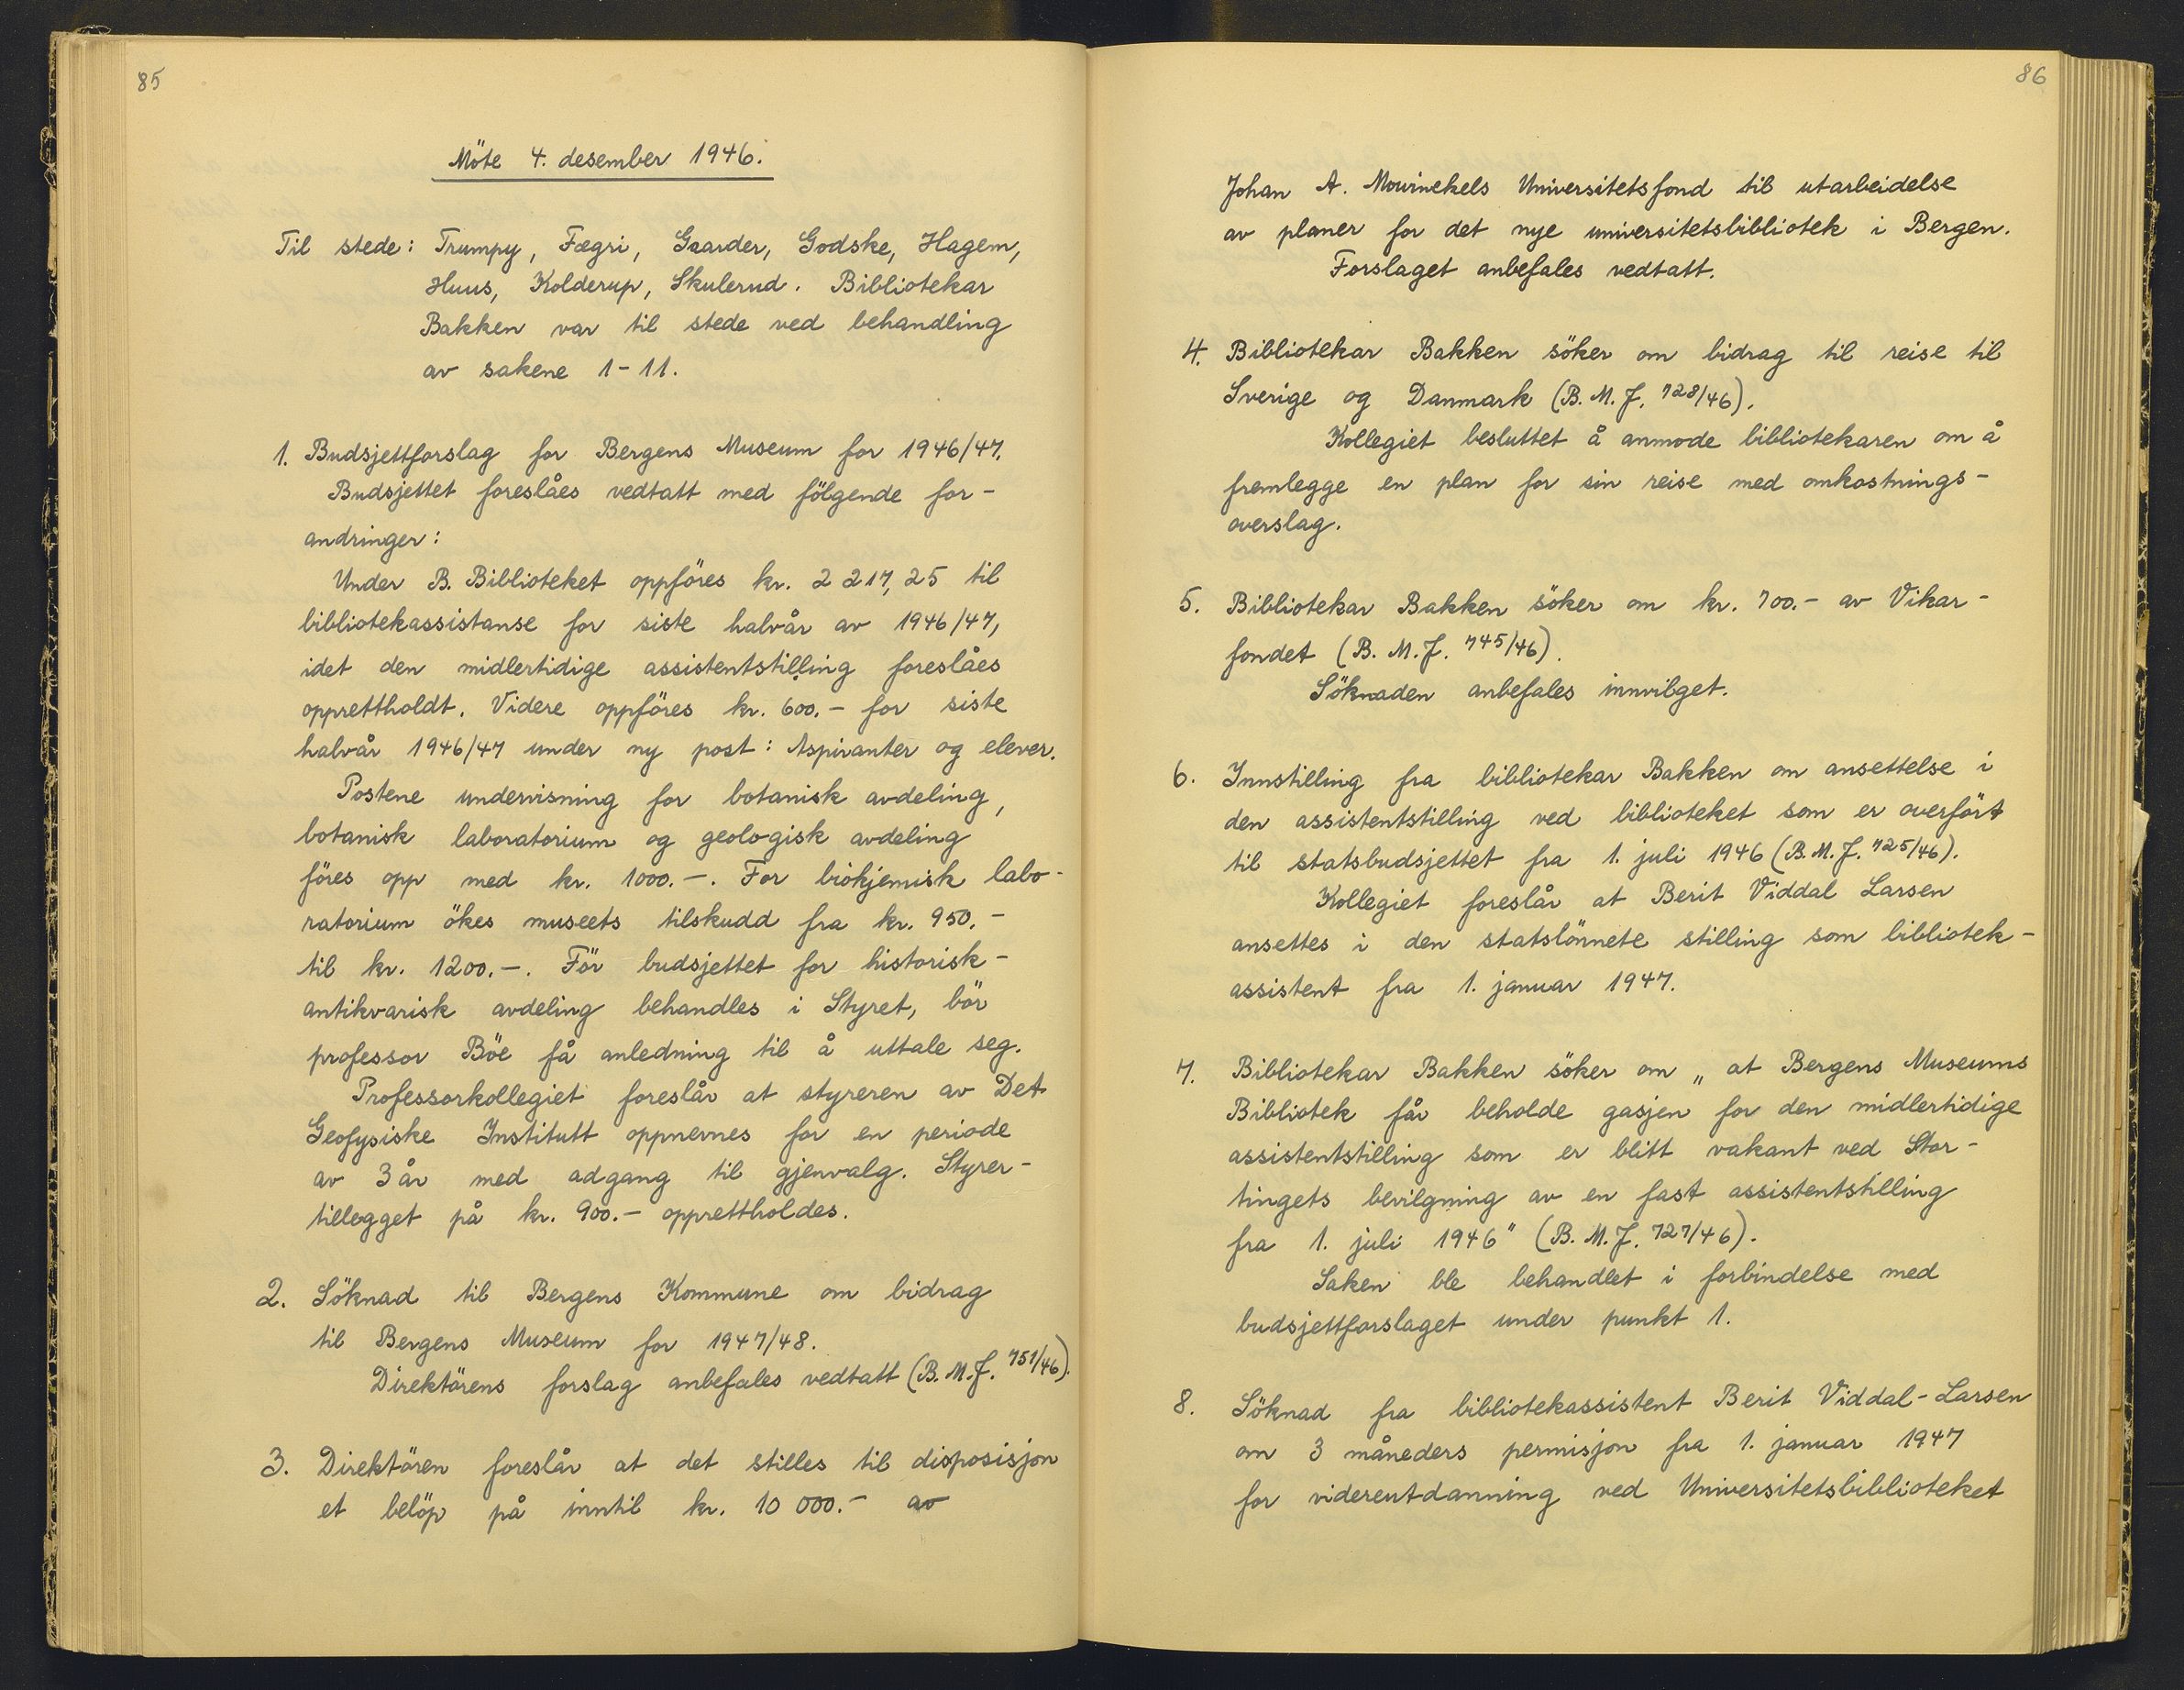 85
Möte 4. desember 1946.
Til stede: Trumpy, Fægri, Gaarder, Godske, Hagem,
Huus, Kolderup, Skulerud. Bibliotekar
Bakken var til stede ved behandling
av sakene 1-11.
1. Budsjettforslag for Bergens Museum for 1946/47.
Budsjettet foreslåes vedtatt med fölgende for-
andringer:
Under B. Biblioteket oppföres kr. 2 217,25 til
bibliotekassistanse for siste halvår av 1946/47,
idet den midlertidige assistentstilling foreslåes
opprettholdt. Videre oppföres kr. 600.- for siste
halvår 1946/47 under ny post: Aspiranter og elever.
Postene undervisning for botanisk avdeling,
botanisk laboratorium og geologisk avdeling
föres opp med kr. 1000.-. For biokjemisk labo-
ratorium ökes museets tilskudd fra kr. 950.-
til kr. 1200.-.För budsjettet for historisk-
antikvarisk avdeling behandles i Styret, bör
professor Böe få anledning til å uttale seg.
Professorkollegiet foreslår at styreren av Det
Geofysiske Institutt oppnevnes for en periode
av 3 år med adgang til gjenvalg. Styrer-
tillegget på kr. 900.- opprettholdes.
2. Söknad til Bergens Kommune om bidrag
til Bergens Museum for 1947/48.
Direktörens forslag anbefales vedtatt (B. M. J. 751/46).
3. Direktören foreslår at det stilles til disposisjon
et belöp på inntil kr. 10 000.- av
86
Johan A. Mowinckels Universitetsfond til utarbeidelse
av planer for det nye universitetsbibliotek i Bergen.
Forslaget anbefales vedtatt.
4. Bibliotekar Bakken söker om bidrag til reise til
Sverige og Danmark (B. M. J. 728/46).
Kollegiet besluttet å anmode bibliotekaren om å
fremlegge en plan for sin reise med omkostnings-
overslag.
5. Bibliotekar Bakken söker om kr. 700.- av Vikar-
fondet (B. M. J. 745/46).
Söknaden anbefales innvilget.
6. Innstilling fra bibliotekar Bakken om ansettelse i
den assistentstilling ved biblioteket som er overfört
til statsbudsjettet fra 1. juli 1946 (B. M. J. 725/46).
Kollegiet foreslår at Berit Viddal Larsen
ansettes i den statslönnete stilling som bibliotek-
assistent fra 1. januar 1947.
7. Bibliotekar Bakken söker om „at Bergens Museums
Bibliotek får beholde gasjen for den midlertidige
assistentstilling som er blitt vakant ved Stor-
tingets bevilgning av en fast assistentstilling
fra 1. juli 1946" (B. M. J. 727/46).
Saken ble behandlet i forbindelse med
budsjettforslaget under punkt 1.
8. Söknad fra bibliotekassistent Berit Viddal-Larsen
om 3 måneders permisjon fra 1. januar 1947
for viderentdanning ved Universitetsbiblioteket